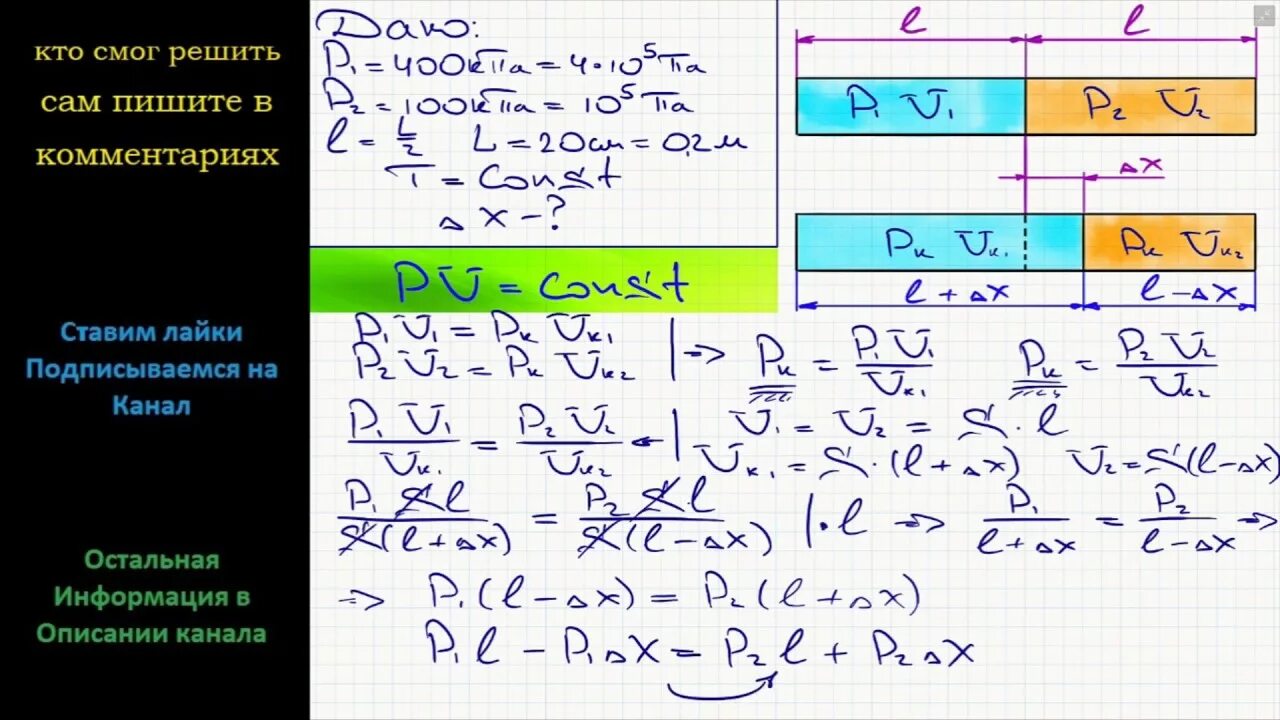 кто смог решить
сам пишите в
комментариях
Ставим лайки
Подписываемся на
Канал
Остальная
Информация в
Описании канала
Дано:
P₁ = 400кПа = 4·10⁵Па
P₂ = 100кПа = 10⁵Па
l = L/2 L = 20см = 0,2м
T = Const
Δx - ?
l l
P₁ V₁ P₂ V₂
Δx
Pк Vк₁ Pк Vк₂
l + Δx l - Δx
PV = const
P₁V₁ = Pк Vк₁
P₂V₂ = Pк Vк₂ | => Pк = P₁V₁/Vк₁ Pк = P₂V₂/Vк₂
P₁V₁/Vк₁ = P₂V₂/Vк₂ <- | V₁ = V₂ = S·l
Vк₁ = S·(l + Δx) V₂ = S(l - Δx)
P₁Sl/S(l + Δx) = P₂S·l/S(l - Δx) |·l => P₁/l + Δx = P₂/l - Δx =>
=> P₁(l - Δx) = P₂(l + Δx)
P₁l - P₁Δx = P₂l + P₂Δx